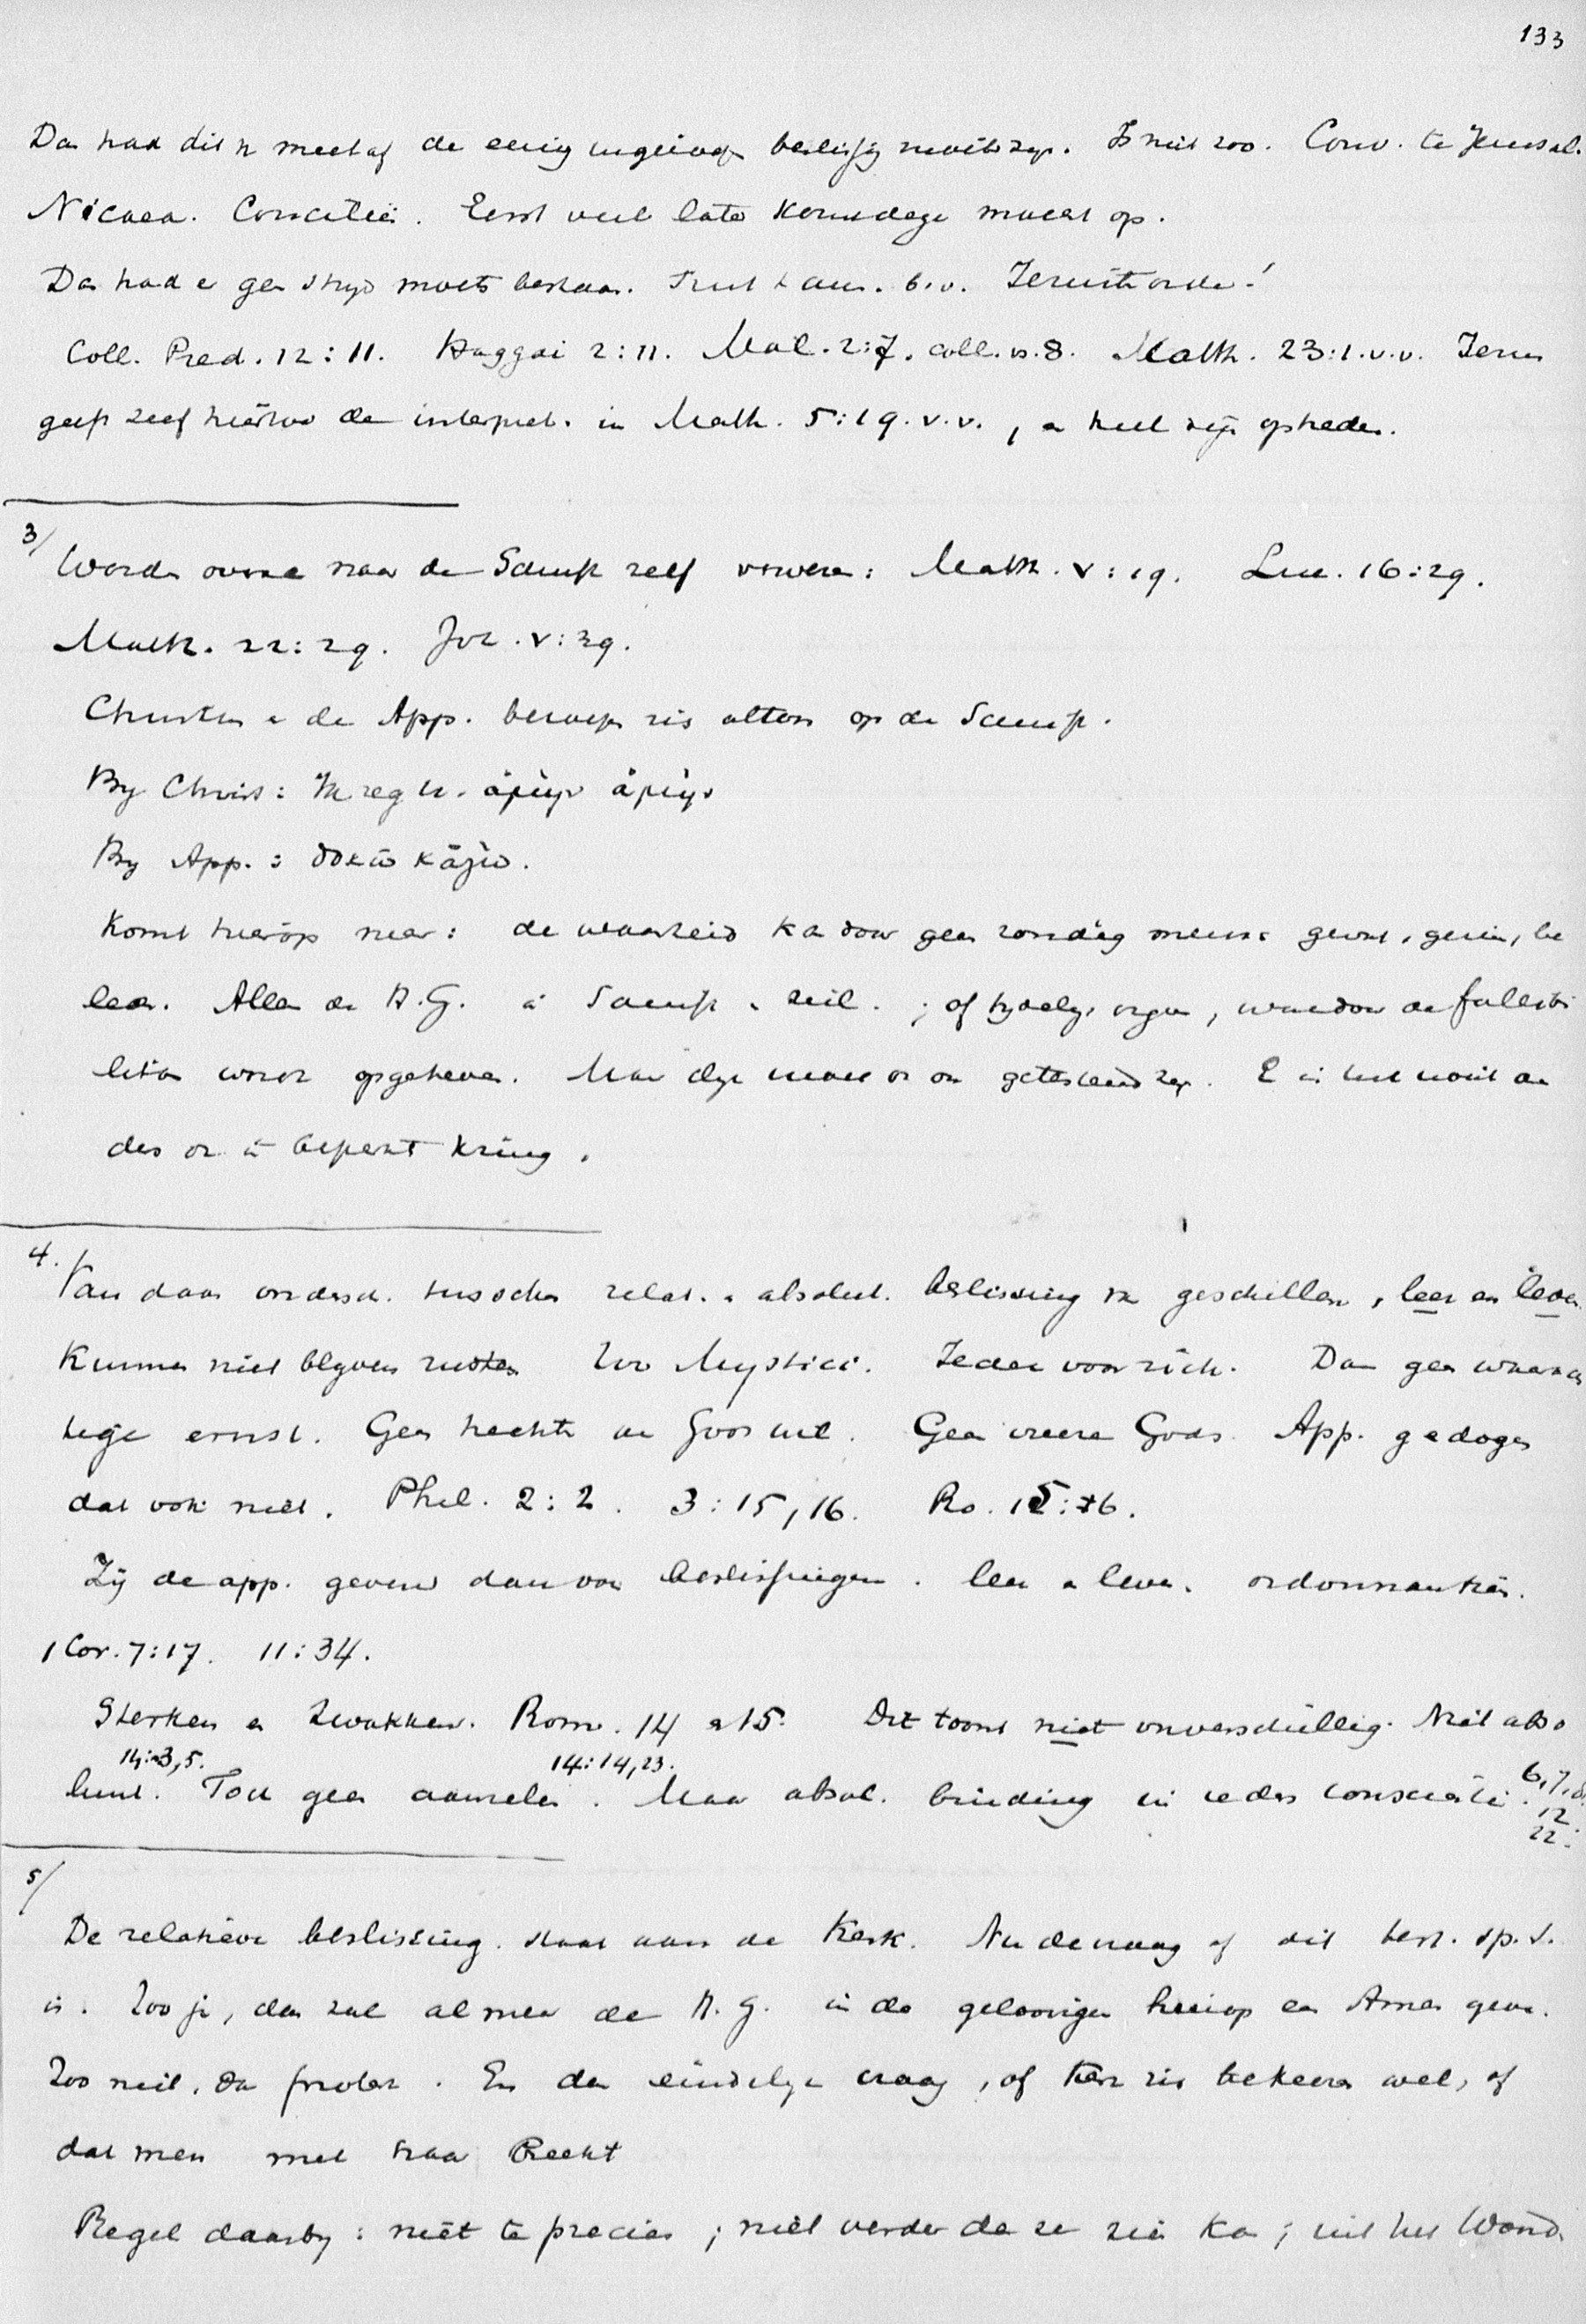 133
Dan had dit h de eenig moeten zyn. Is niet zoo. Conv. te Jerusal.
Nicaea. Conciliën. Eerst veel later op.
Dan had er gen stryd moeten bestaan. b.v.
Coll. Pred. 12:11. Haggai 2:11. Mal. 2:7. coll. vs. 8. Matth. 23:1.v.v. Jezus
geeft zelf hiervoor de interpret. in Matth. 5:19.v.v., en heel zijn optreden.
3/
Worden overal naar de Schrift zelf verwezen: Matth. V:19. Luc. 16:29.
Matth. 22:29. Joh. V:39.
Christus en de App. beroepen zich altoos op de Schrift.
By Christ: Ik zeg u. ἀμὴν ἀμὴν
By App.: δοκῶ κἀγὼ.
Komt hierop neer: de waarheid kan door geen zondig mensch gevat, gezien, be
leden. Alleen de H.G. in Schrift en ziel. ; of tydelyk orgaan, waardoor de fallibi
liteit wordt opgeheven. Maar dan op zyn. En is het nooit an
ders dan in beperkt kring.
4.
Van daar ondersch. tusschen relat. en absolut. beslissing van geschillen, leer en leven.
Kunnen niet blyven rusten Zoo Mystici. Ieder voor zich. Dan geen waarach
tige ernst. Geen hechten aan Gods wil. Geen vreeze Gods. App. gedogen
dat ook niet. Phil. 2:2. 3:15,16. Ro. 15:6.
Zij de app. geven dan ook beslissingen. leer en leven. ordonnantiën.
1 Cor. 7:17. 11:34.
Sterken en Zwakken. Rom. 14 en 15. Dit toont niet onverschillig. Niet abso
14:3,5. 14:14,23. 6,7,8.
luut. Toch geen aarzelen. Maar absol. binding in ieders conscientie.
12.
22.
5/
De relatieve beslissing staat aan de Kerk. Nu de vraag of dit besl. sp. S.
is. Zoo ja, dan zal al meer de H.G. in de geloovigen hierop een Amen geven.
Zoo niet, dan protest. En dan eindelyk vraag, of Kerk zich bekeeren wel, of
dat men met haar Breekt
Regel daarby: niet te precies; niet verder dan ze zien kan; uit het Woord.